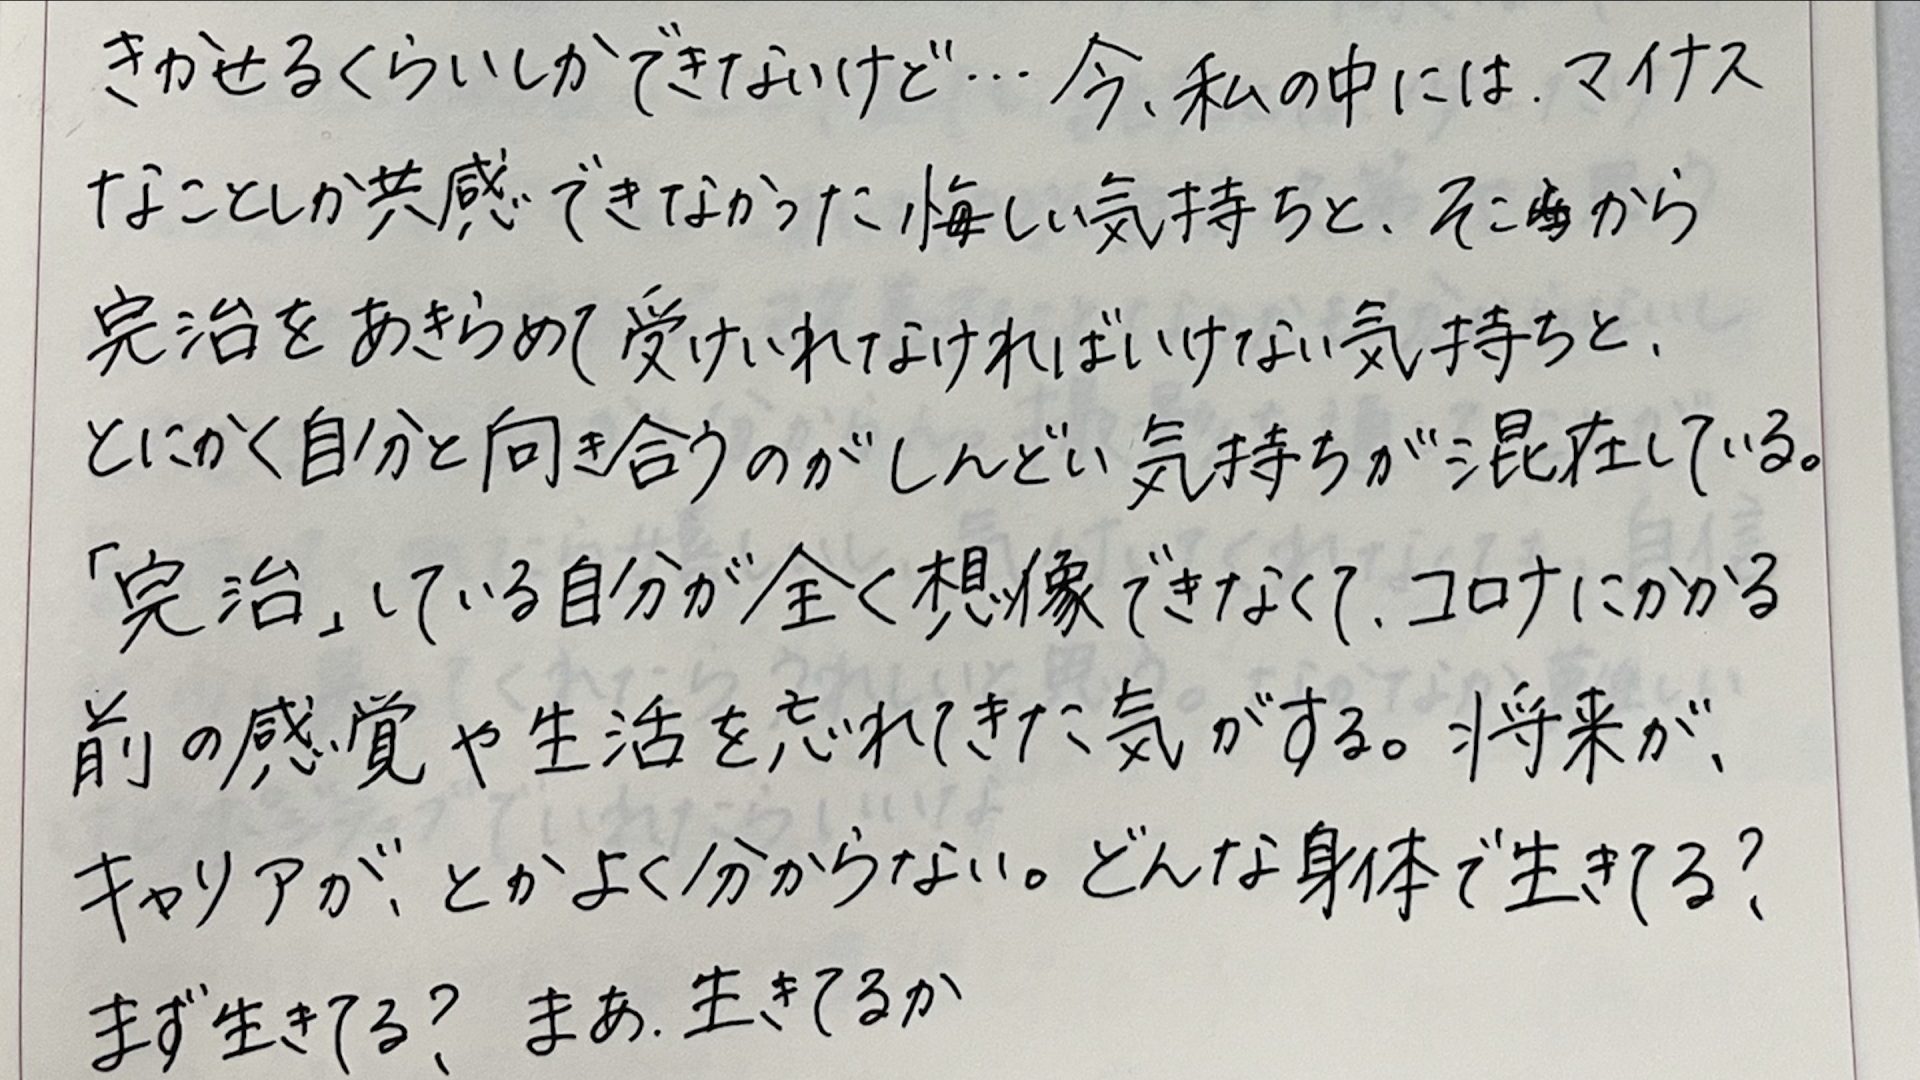 きかせるくらいしかできないけど… 今、私の中には、マイナス
なことしか共感できなかった悔しい気持ちと、そこから
完治をあきらめて受けいれなければいけない気持ちと、
とにかく自分と向き合うのがしんどい気持ちが混在している。
「完治」している自分が全く想像できなくて、コロナにかかる
前の感覚や生活を忘れてきた気がする。将来が、
キャリアが、とかよく分からない。どんな身体で生きてる?
まず生きてる? まあ、生きてるか